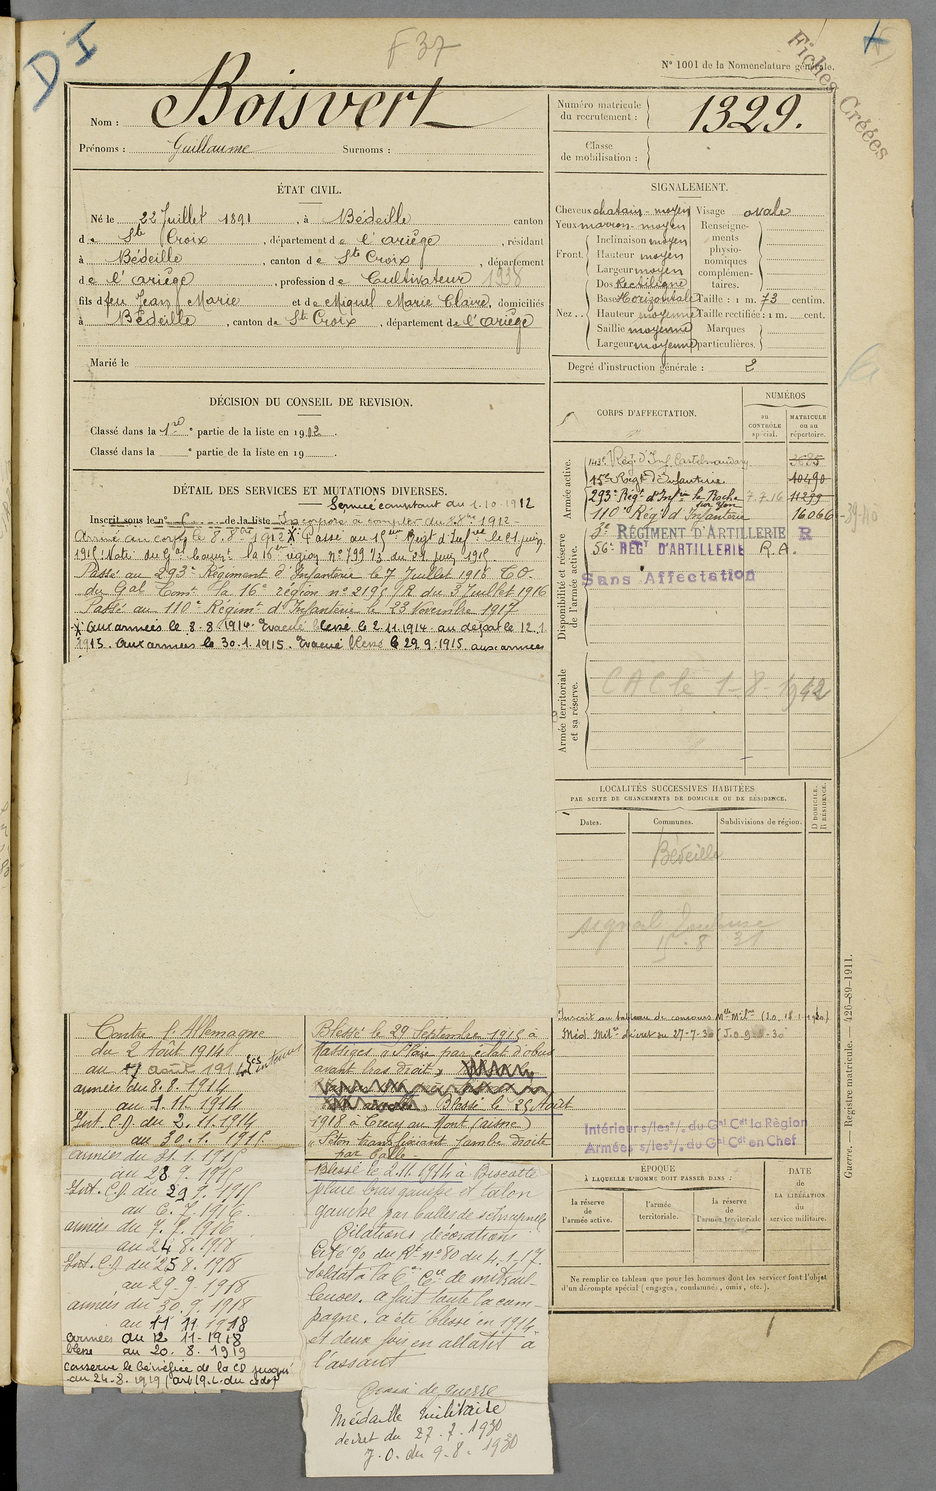 D I
F 37
N° 1001 de la Nomenclature générale.
Fiches Créées
Nom : Boisvert
Prénoms : Guillaume Surnoms :
Numéro matricule du recrutement : 1329.
Classe de mobilisation :
ÉTAT CIVIL.
Né le 22 Juillet 1891, à Bédeille canton
de Ste Croix, département de l'ariège, résidant
à Bédeille, canton de Ste Croix, département
de l'ariège, profession de Cultivateur 1938
fils de feu Jean Marie et de Miquel Marie Claire, domiciliés
à Bédeille, canton de Ste Croix, département de l'ariège
Marié le
SIGNALEMENT.
Cheveux chatain - moyen Visage ovale
Yeux marron - moyen Renseignements physionomiques complémentaires.
Front. Inclinaison moyen
Hauteur moyen
Largeur moyen
Nez.. Dos Rectiligne
Base Horizontale Taille : 1 m. 73 centim.
Hauteur moyenne Taille rectifiée : 1 m. cent.
Saillie moyenne Marques particulières.
Largeur moyenne
Degré d'instruction générale : 2
DÉCISION DU CONSEIL DE REVISION.
Classé dans la 1re partie de la liste en 1912.
Classé dans la e partie de la liste en 19
DÉTAIL DES SERVICES ET MUTATIONS DIVERSES.
Service comptant du 1.10.1912
Inscrit sous le n° de la liste Incorporé à compter du 8 8bre 1912
Arrivé au corps le 8. 8bre 1912 X Passé au 15eme Régt d'Infrie le 21 juin
1915 (Note du Gal Commt la 16eme région n° 799 73 du 21 juin 1915
Passé au 293e Régiment d'Infanterie le 7 Juillet 1916 C.O.
du Gal Comt la 16e région n° 2195/R du 3 Juillet 1916
Passé au 110e Régimt d'Infanterie le 23 Novembre 1917
X aux armées le 8-8-1914. Evacué blessé le 2.11.1914. au dépot le 12.1
1915. aux armées le 30.1.1915. Evacué blessé le 29.9.1915. aux armées
CORPS D'AFFECTATION.
NUMÉROS
au contrôle spécial.
MATRICULE ou au répertoire.
Armée active.
143e Régt d'Inf. Castelnaudary 3685
15e Régt d'Infanterie 10490
293e Régt d'Infrie la Roche sur Yon 7.7.16 11279
110e Régt d'Infanterie 16066
39-40
Disponibilité et réserve de l'armée active.
RÉGIMENT D'ARTILLERIE R
56e REGt D'ARTILLERIE R.A.
Sans Affectation
Armée territoriale et sa réserve.
CAC le 1-8-1942
LOCALITÉS SUCCESSIVES HABITÉES
PAR SUITE DE CHANGEMENTS DE DOMICILE OU DE RÉSIDENCE.
Dates. Communes. Subdivisions de région. D DOMICILE. R RÉSIDENCE.
Bédeille
signal Toulouse
Inscrit au tableau de concours Mlle Milre (J.O. 18.1.1930)
Méd. Milre décret du 27-7-30 J.O. 9-8-30
Intérieur s/les o/. du Gal Cdt la Région
Armées s/les o/. du Gal Cdt en Chef
ÉPOQUE
À LAQUELLE L'HOMME DOIT PASSER DANS :
DATE DE LA LIBÉRATION du service militaire.
la réserve de l'armée active.
l'armée territoriale.
la réserve de l'armée territoriale
Ne remplir ce tableau que pour les hommes dont les services font l'objet d'un décompte spécial (engagés, condamnés, omis, etc.).
Guerre. — Registre matricule. — 426-89-1911.
Contre l'Allemagne
du 2 Août 1914
au 7 août 1914 intérieur
armées du 8.8.1914
au 1.11.1914
Int. C.D. du 2.11.1914
au 30.1.1915
armées du 31.1.1915
au 28.9.1915
Int. C.D. du 29.9.1915
au 6.7.1916
armées du 7.7.1916
au 24.8.1918
Int. C.D. du 25.8.1918
au 29-9-1918
armées du 30.9.1918
au 11 11 1918
armées du 12-11-1918
au 20.8.1919
conserve le bénéfice de la CD jusqu'
au 24-8-1919 (art 19.L. du
Blessé le 29 Septembre 1915 à
Massiges "Plaie par éclat d'obus
avant bras droit,
Blessé le 25 Août
1918 à Crecy au Mont (aisne)
"Séton transfixiant jambe droite
par balle.
Blessé le 2.11.1914 à Biscotte
plaie bras gauche et talon
gauche par balles de schrapnell
Citations décorations
Cité % du Rt n° 80 du 4.5.17.
Soldat à la 6e Cie de mitrail-
leuses. a fait toute la cam-
pagne. a été blessé en 1914
et deux fois en allant à
l'assaut
Croix de guerre
Médaille militaire
décret du 27.7.1930
J.O. du 9.8.1930